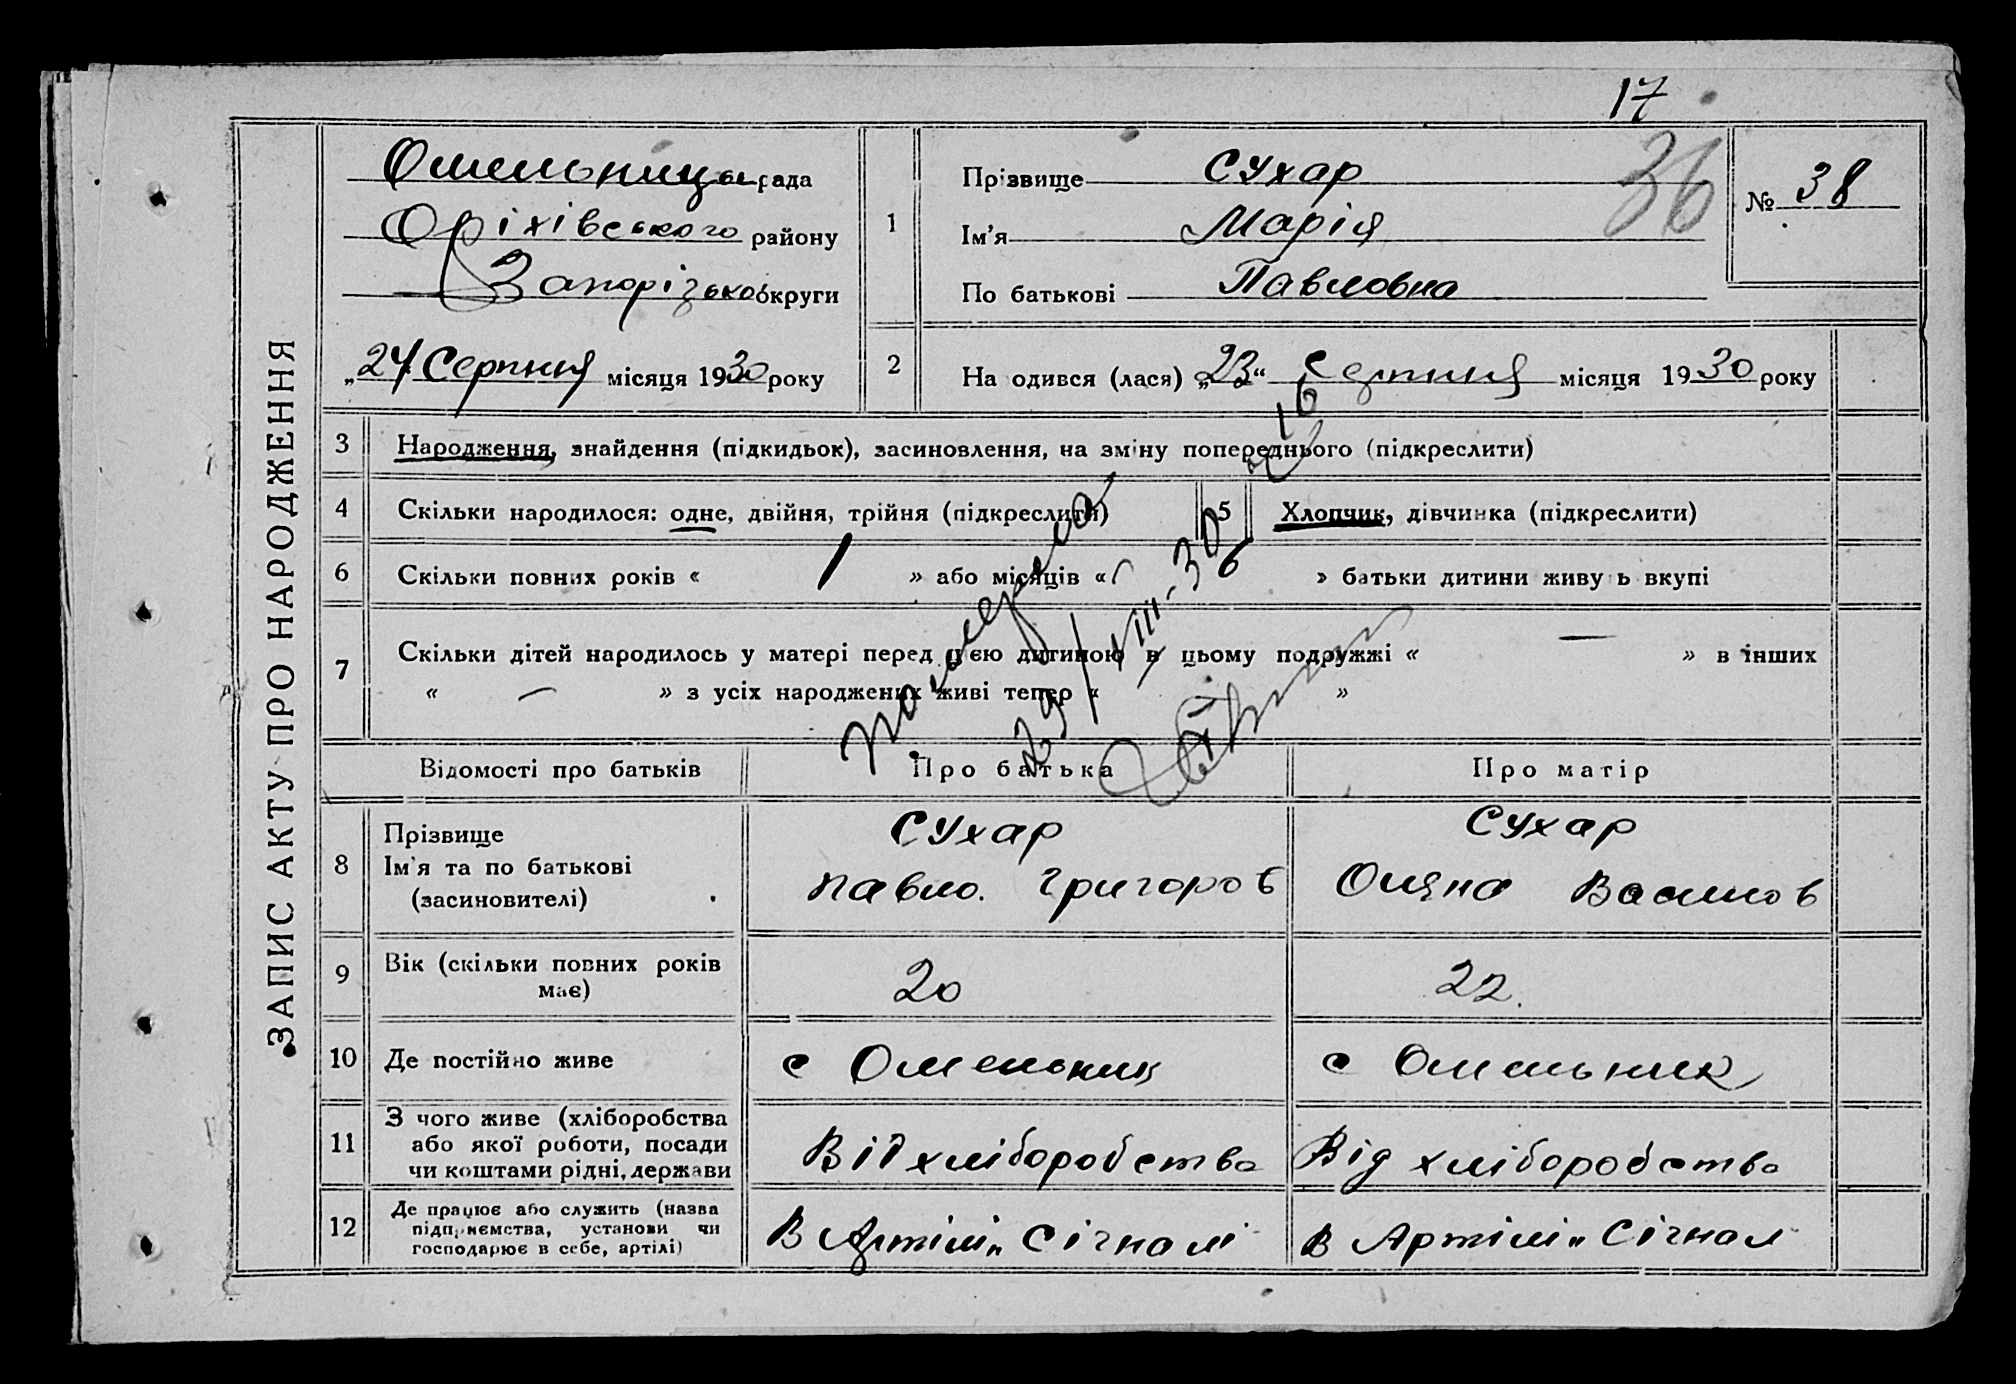 17
ЗАПИС АКТУ ПРО НАРОДЖЕННЯ
Омельницька рада
Оріхівського району
Запорізької округи
„24 Серпня місяця 1930 року
1
Прізвище Сухар
Ім'я Марія
По батькові Павловна
36
№ 38
2
На одився (лася) „23“ Серпня місяця 1930 року
3
Народження, знайдення (підкидьок), засиновлення, на зміну попереднього (підкреслити)
4
Скільки народилося: одне, двійня, трійня (підкреслити)
5
Хлопчик, дівчинка (підкреслити)
6
Скільки повних років « 1 » або місяців « » батьки дитини живуть вкупі
7
Скільки дітей народилось у матері перед цією дитиною в цьому подружжі « — » в інших
« — » з усіх народжених живі тепер « »
померла
29/VIII-30
Відомості про батьків
Про батька
Про матір
8
Прізвище
Ім'я та по батькові
(засиновителі)
Сухар
Павло. Григоров
Сухар
Оляна Васильов
9
Вік (скільки повних років
має)
20
22.
10
Де постійно живе
с Омельник
с Омельник
11
З чого живе (хліборобства
або якої роботи, посади
чи коштами рідні, держави
Від хліборобства
Від хліборобства
12
Де працює або служить (назва
підприємства, установи чи
господарює в себе, артілі)
В Артілі „Сігналі
В Артілі „Сігнал